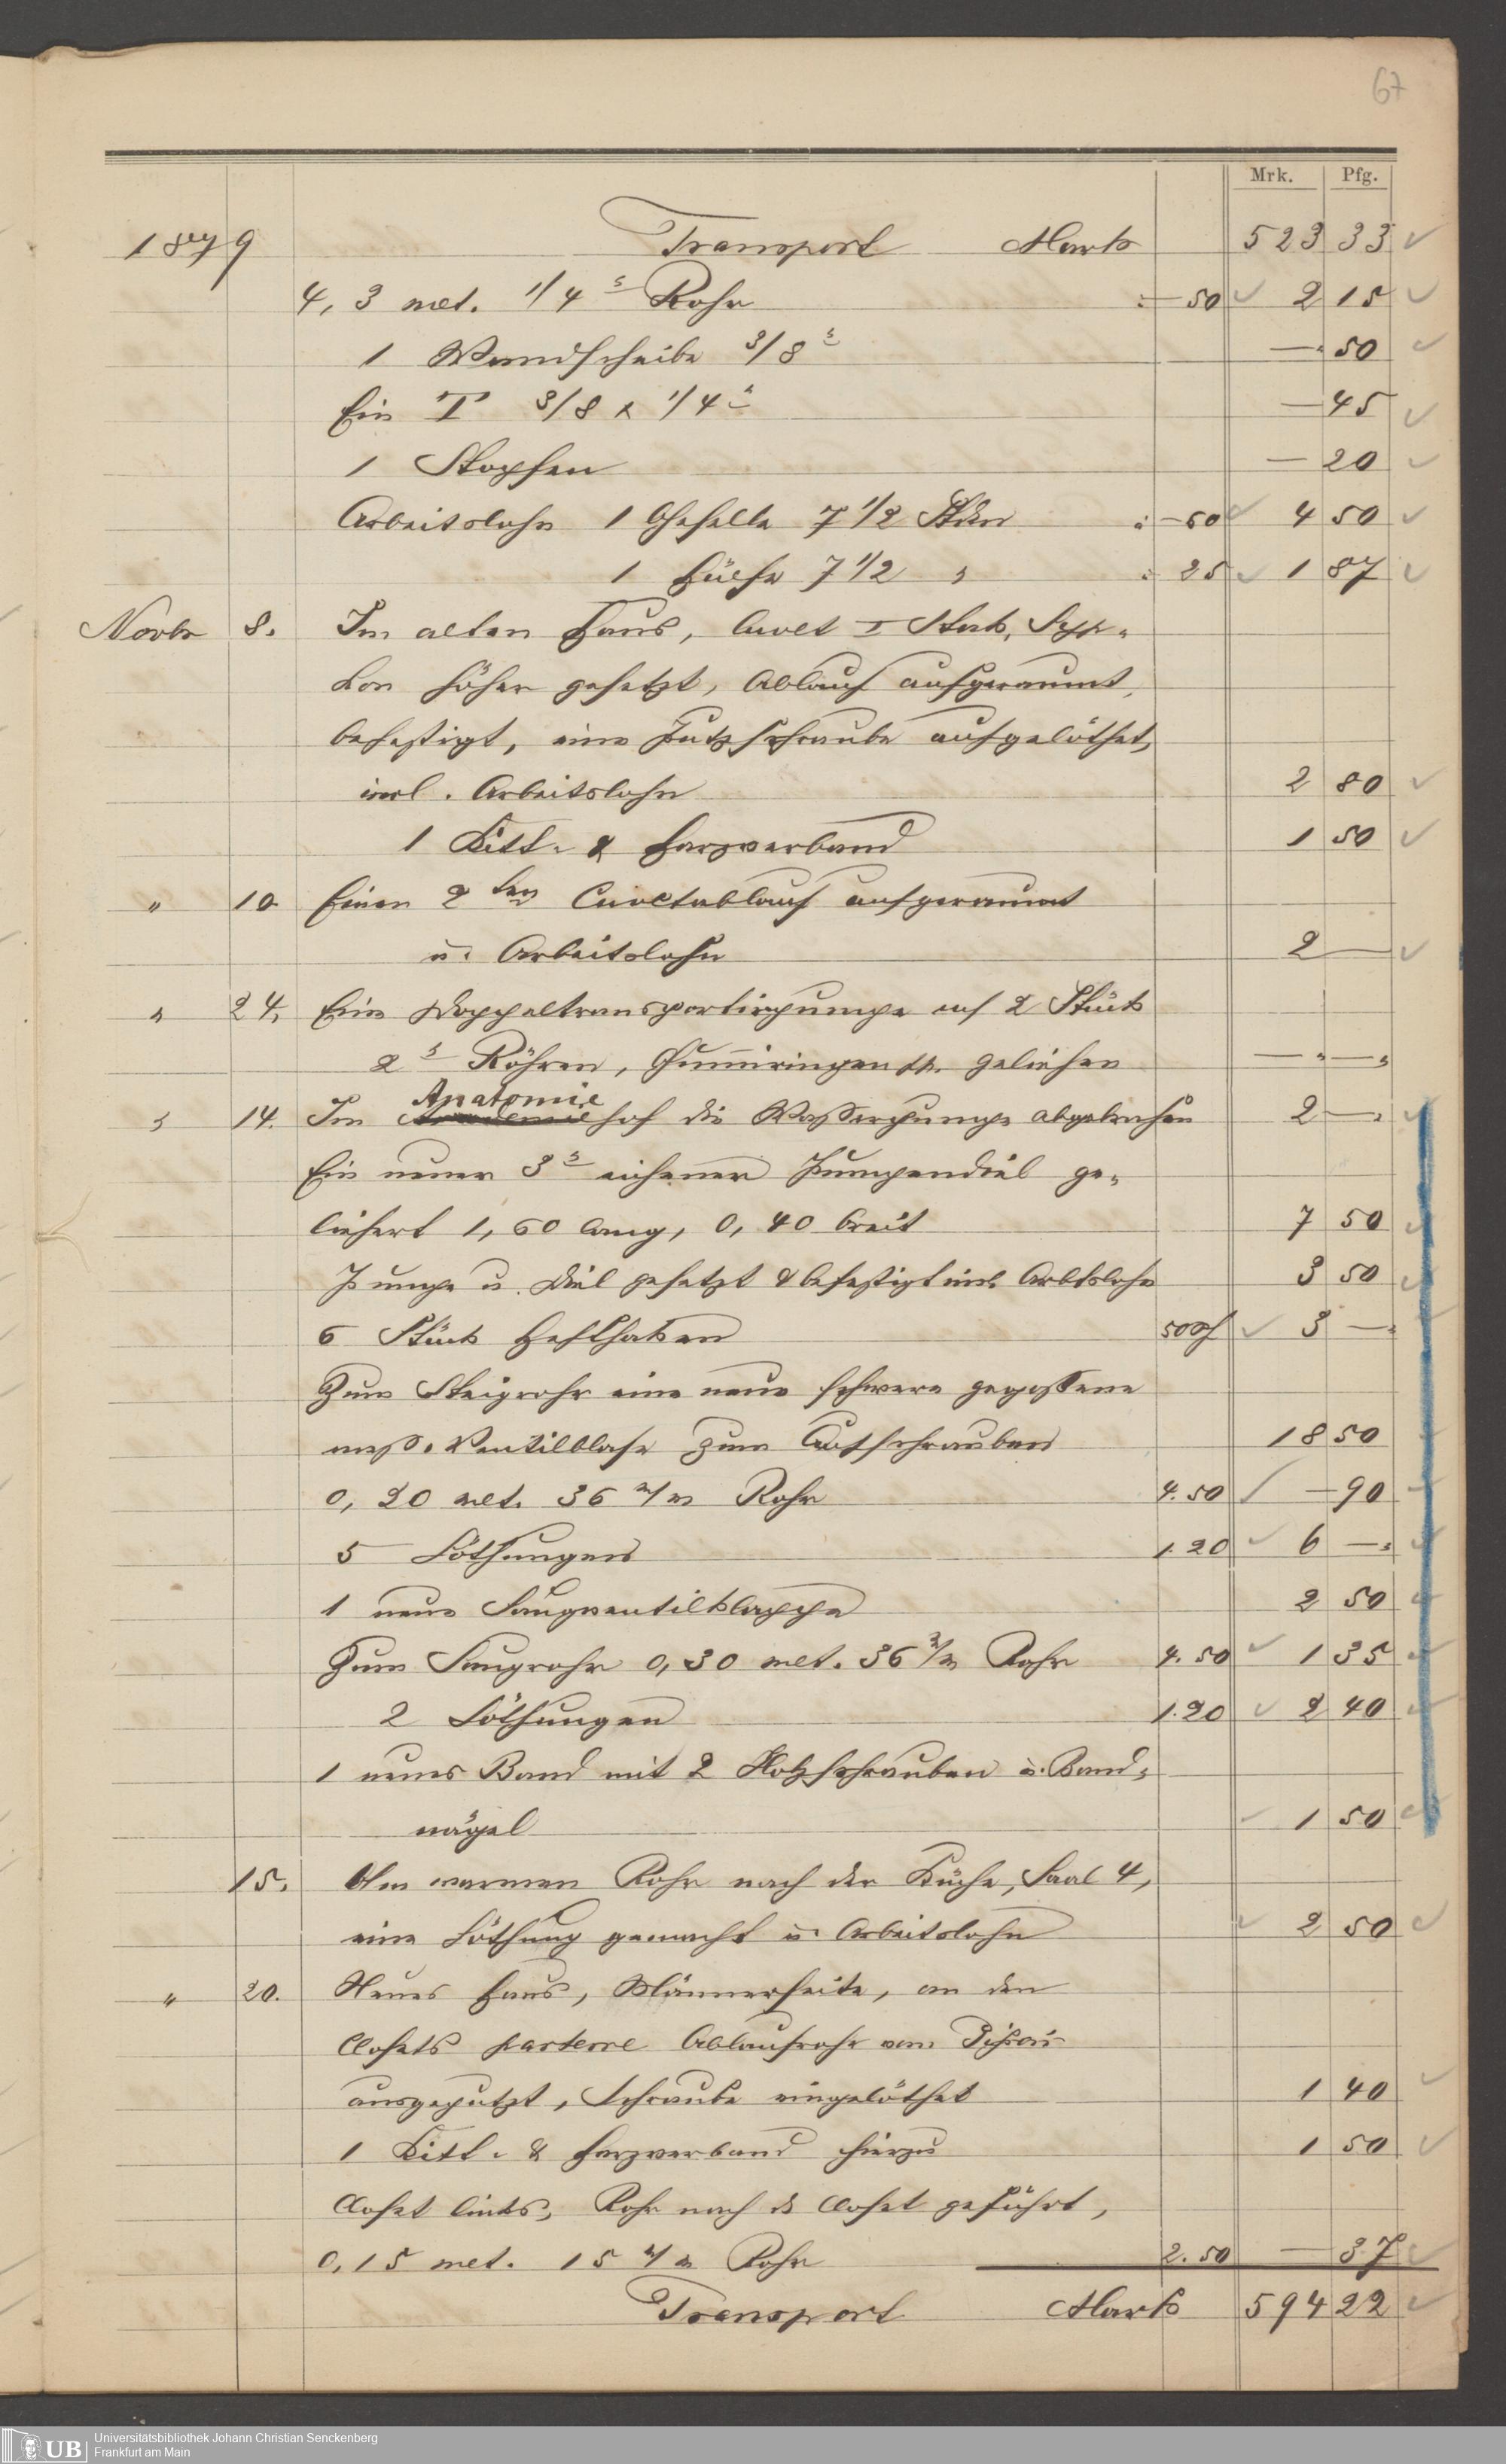 67
Mrk. Pfg.
1879 Transport Mark 523 33
4,3 met. 1/4" Rohr : — 50 2 15
1 Wandscheibe 3/8" — 50
Ein T 3/8 x 1/4" — 45
1 Stopfen — 20
Arbeitslohn 1 Gehülfe 7 1/2 Stdn : — 60 4 50
1 Hülfe 7 1/2 " : 25 1 87
Novbr 8. Im alten Haus, Cuvet I Stock, Syph-
kon höher gesetzt, Ablauf aufgeraumt,
befestigt, eine Putzschraube aufgelöthet,
incl. Arbeitslohn 2 80
1 Kitt- & Harzverband 1 50
" 10. Einen 2ten Cuvetablauf aufgeraumt
u. Arbeitslohn 2 —
" 24. Eine Doppeltransportirpumpe auf 2 Stück
2" Röhren, Gummiringen geliehen — " — "
" 14. Im Anatomie hof die Wasserpumpe abgebrochen 2 —
Ein neuer 3" eichener Pumpendiel ge-
liefert 1,60 lang, 0,40 breit 7 50
Pumpe u. Diel gesetzt & befestigt incl. Arbtslohn 3 50
6 Stück Hefthaken 50 3 —
Zum Steigrohr eine neue schwere gegossene
mess. Ventilblase zum Aufschrauben 18 50
0,20 met. 36 m/m Rohr 4.50 — 90
5 Löthungen 1.20 6 —
1 neue Saugventilklappe 2 50
Zum Saugrohr 0,30 met. 36 m/m Rohr 4.50 1 35
2 Löthungen 1.20 2 40
1 neues Band mit 2 Holzschrauben u. Band-
nägel 1 50
15. Am warmen Rohr nach der Küche, Saal 4,
eine Löthung gemacht u. Arbeitslohn 2 50
" 20. Neues Haus, Männerseite, an den
Closets parterre Ablaufrohr vom
ausgeputzt, Schraube eingelöthet 1 40
1 Kitt- & Harzverband hierzu 1 50
Closet links, Rohr nach d Closet geführt,
0,15 met. 15 m/m Rohr 2.50 — 37
Transport Mark 594 22
UB Universitätsbibliothek Johann Christian Senckenberg
Frankfurt am Main